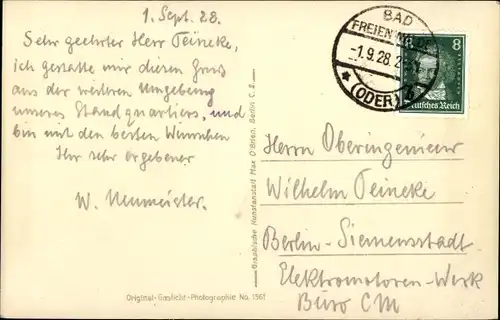 1. Sept. 28.
Sehr geehrter Herr Teineke,
ich gestatte mir diesen Gruß
aus der weiteren Umgebung
unseres Standquartiers, und
bin mit den besten Wünschen
Ihr sehr ergebener
W. Neumeister.
Original-Gaslicht-Photographie No. 1361
Graphische Kunstanstalt Max O'Brien, Berlin C. 2.
BAD
FREIENWALDE
-1.9.28.
* (ODER)
8
Deutsches Reich
Herrn Oberingenieur
Wilhelm Teineke
Berlin-Siemensstadt
Elektromotoren-Werk
Büro CM